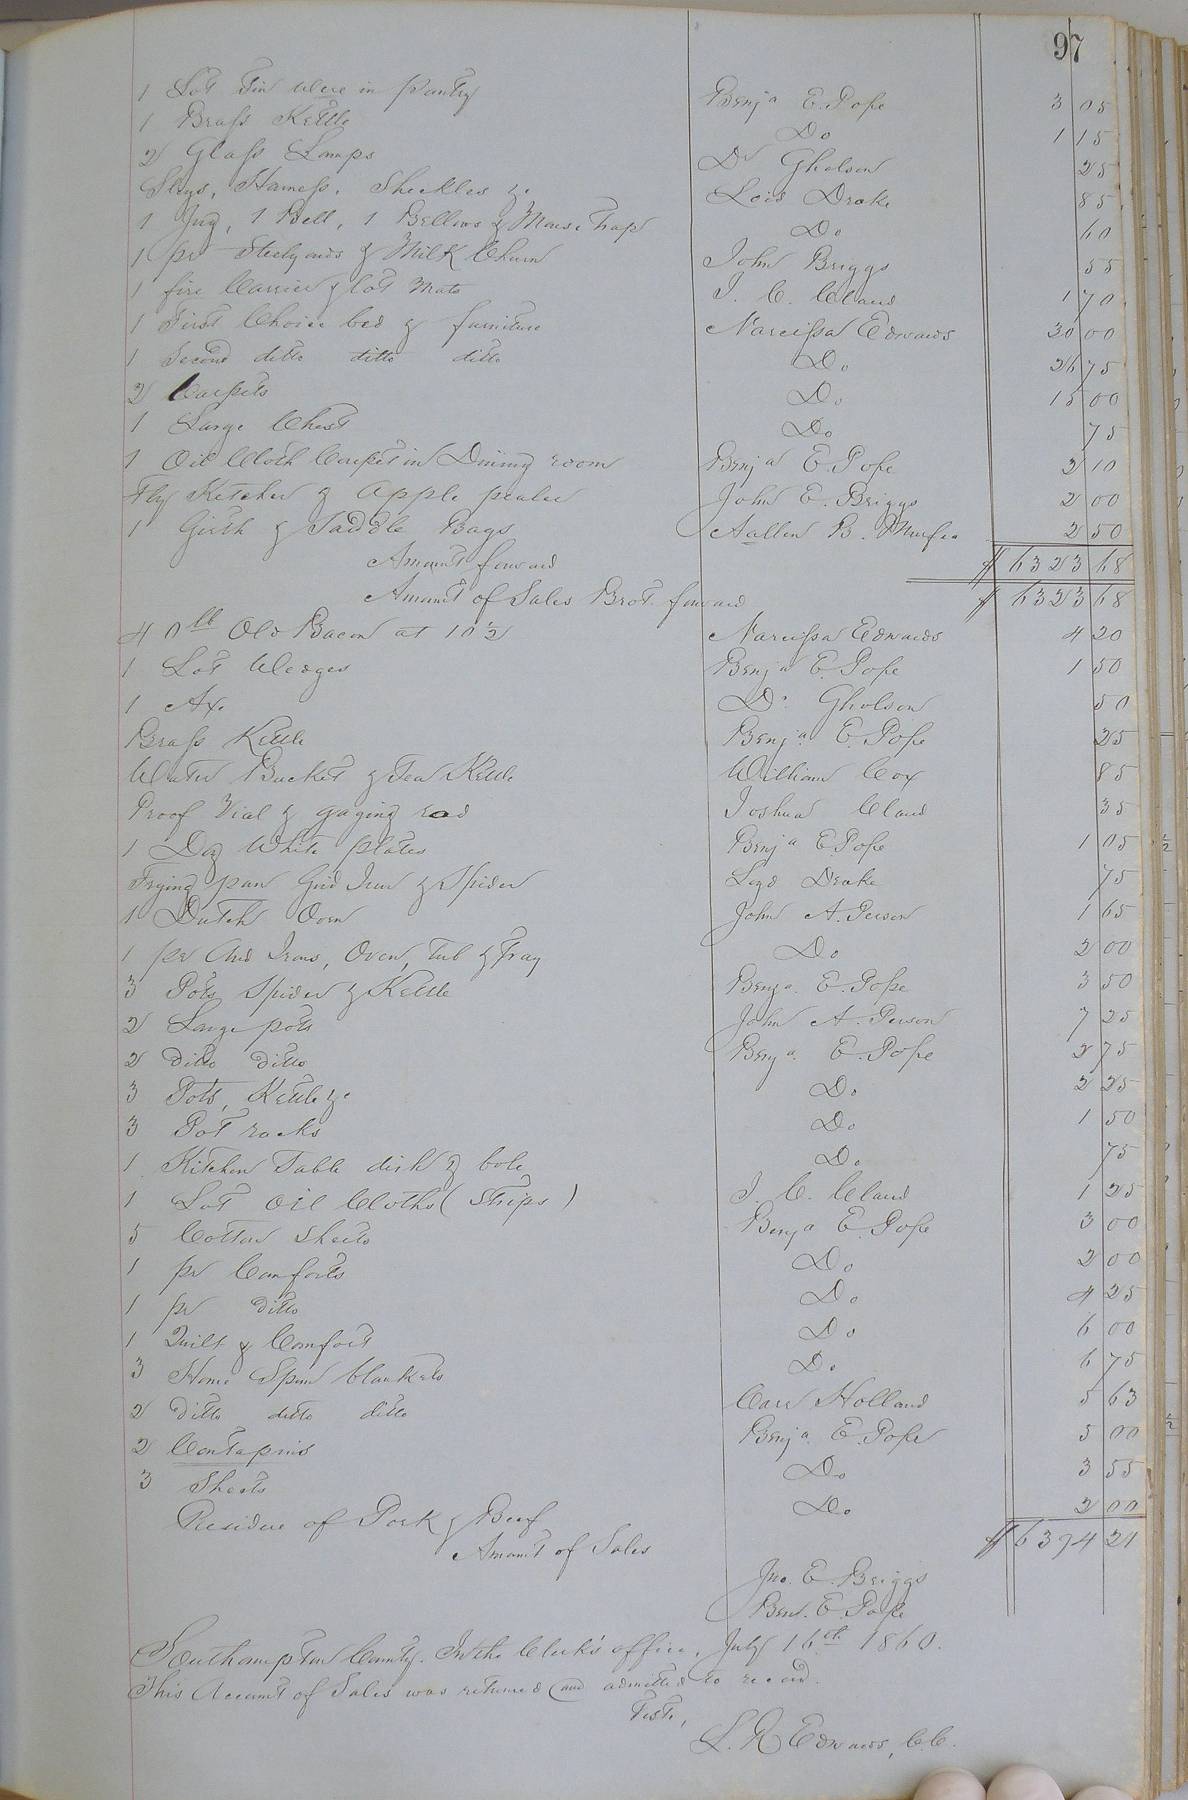 97
1 Lot Tin Ware in Pantry Benja E. Pope 3 05
1 Brass Kettle Do 1 15
2 Glass Lamps Dr Gholson 25
Slays, Harness, Sheckles &. Lois Drake 85
1 Jug, 1 Bell, 1 Bellows & Mouse Trap Do 60
1 pr Steelyards & Milk Churn John Briggs 55
1 fire Carrier & lot Mats J. C. Claud 1 70
1 First Choice bed & furniture Narcissa Edwards 30 00
1 Second ditto ditto ditto Do 26 75
2 Carpets Do 15 00
1 Large Chest Do 75
1 Oil Cloth Carpet in Dining room Benja E. Pope 2 10
Fly Ketcher & Apple pealer John E. Briggs 2 00
1 Girth & Saddle Bags Aallen B. 2 50
Amount forward $ 6323 68
Amount of Sales Brot. forward $ 6323 68
40 lb Old Bacon at 10½ Narcissa Edwards 4 20
1 Lot Wedges Benja E. Pope 1 50
1 Ax. Dr Gholson 50
Brass Kettle Benja E. Pope 25
Water Bucket & Tea Kettle William Cox 85
Proof Vial & gaging rod Joshua Claud 35
1 Doz White plates Benja E. Pope 1 05
Frying pan Grid Iron & Spider Loyd Drake 75
1 Dutch Oven John A. Person 1 65
1 pr And Irons, Oven, Tub & Tray Do 2 00
3 Pots Spider & Kettle Benja. E. Pope 3 50
2 Large pots John A. Person 7 25
2 ditto ditto Benja. E. Pope 2 75
3 Pots, Kettle &c Do 2 25
3 Pot racks Do 1 50
1 Kitchen Table dish & bole Do 75
1 Lot Oil Cloths (Strips) J. C. Claud 1 25
5 Cotton Sheets Benja E. Pope 3 00
1 pr Comforts Do 2 00
1 pr ditto Do 4 25
1 Quilt & Comfort Do 6 00
3 Home Spun blankets Do 6 75
2 ditto ditto ditto Carr Holland 5 63
2 Contapins Benja. E. Pope 5 00
3 Sheets Do 3 55
Residue of Pork & Beef Do 2 00
Amount of Sales $ 6394 21
Jno. E. Briggs
Ben. E. Pope
Southampton County. In the Clerk's office, July 16th 1860.
This Account of Sales was returned and admitted to record.
Teste,
L. R. Edwards, C.C.